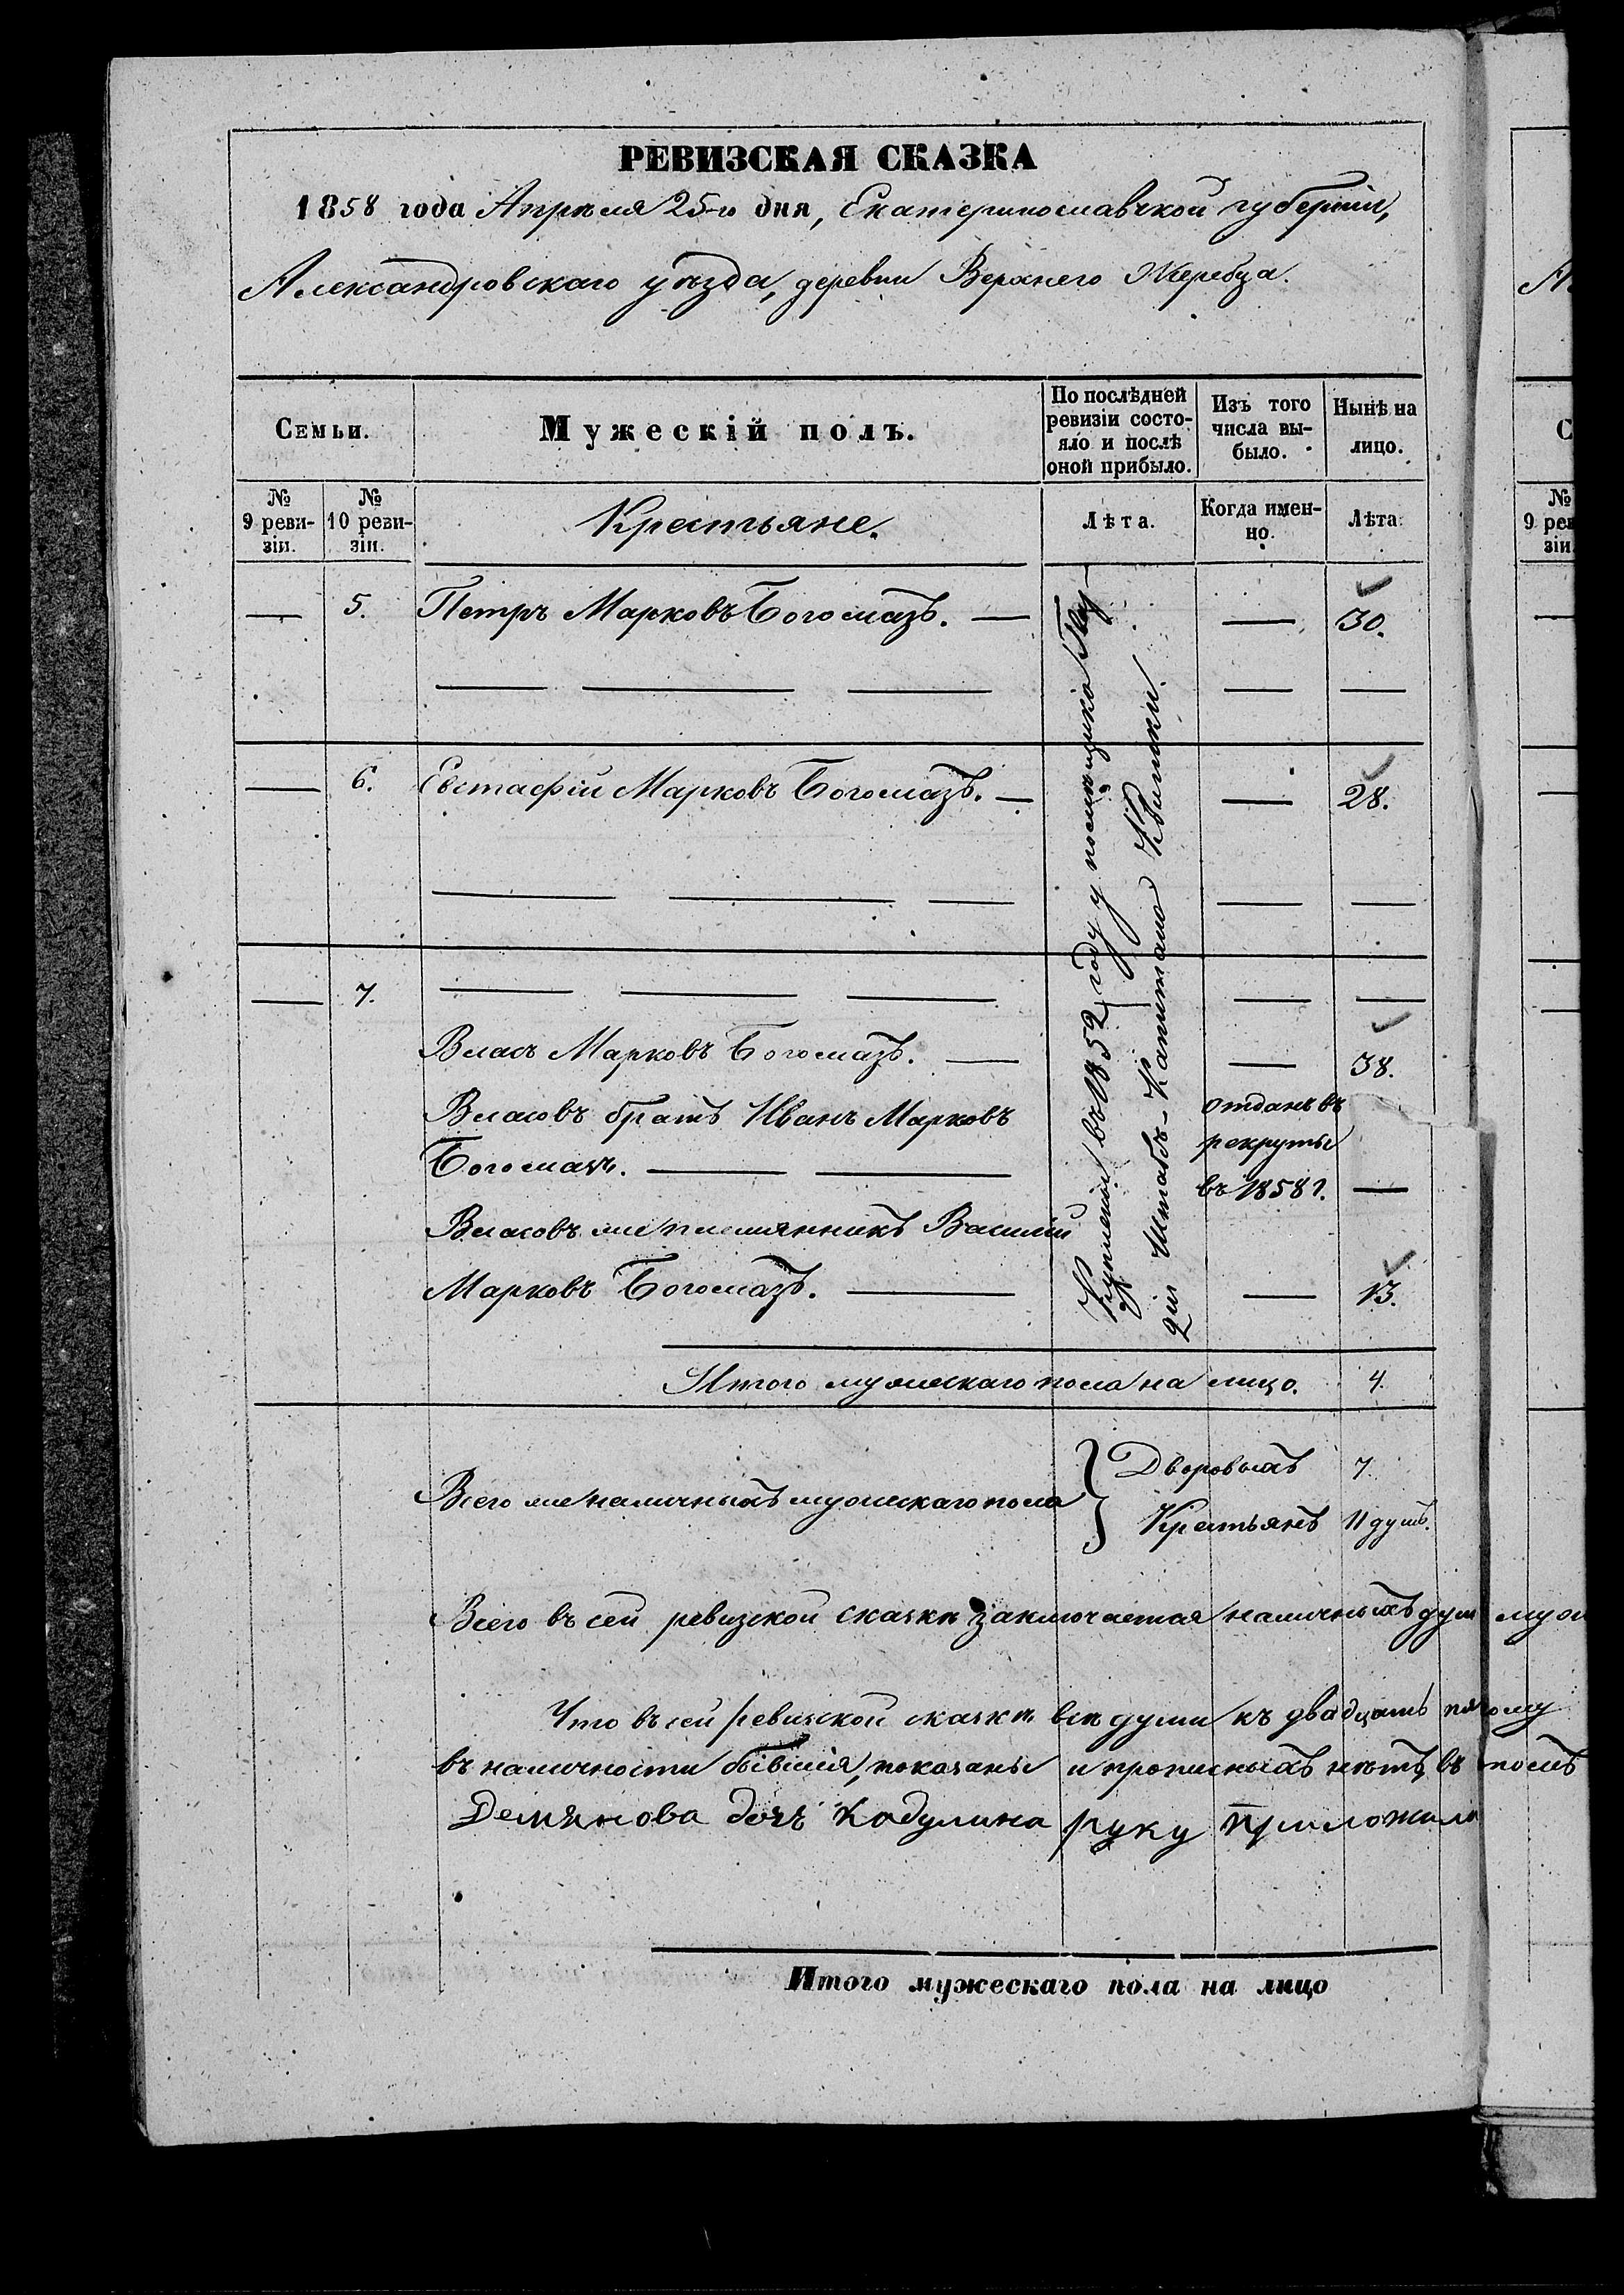 РЕВИЗСКАЯ СКАЗКА
1858 года Апрѣля 25-го дня, Екатеринославской губерніи,
Александровскаго уѣзда, деревни Верхнего Жеребца.
Семьи.
Мужескій полъ.
По послѣдней ревизіи состо-
яло и послѣ оной прибыло.
Изъ того числа вы-
было.
Нынѣ на лицо.
№ 9 реви-
зіи.
№ 10 реви-
зіи.
Крестьяне.
Лѣта.
Когда имен-
но.
Лѣта.
— 5. Петръ Марковъ Богомазъ. — — 30.
— 6. Евстафій Марковъ Богомазъ. — — 28.
— 7.
Власъ Марковъ Богомазъ. — — 38.
Власовъ братъ Иванъ Марковъ
Богомазъ. —
отданъ въ
рекруты
въ 1858 г. —
Власовъ же племянникъ Василій
Марковъ Богомазъ. — — 13.
Куплены въ 1852 году у помѣщика
Штабъ-Капитана Квитки.
Итого мужескаго пола на лицо. 4.
Всего же наличныхъ мужескаго пола
Дворовыхъ 7.
Крестьянъ 11 душъ.
Всего въ сей ревизской сказкѣ заключается наличныхъ душ муж
Что въ сей ревизской сказкѣ всѣ души къ двадцать пятому
въ наличности бывшія, показаны и прописныхъ нѣтъ, въ томъ
Демянова дочь Кадулина руку приложила
Итого мужескаго пола на лицо